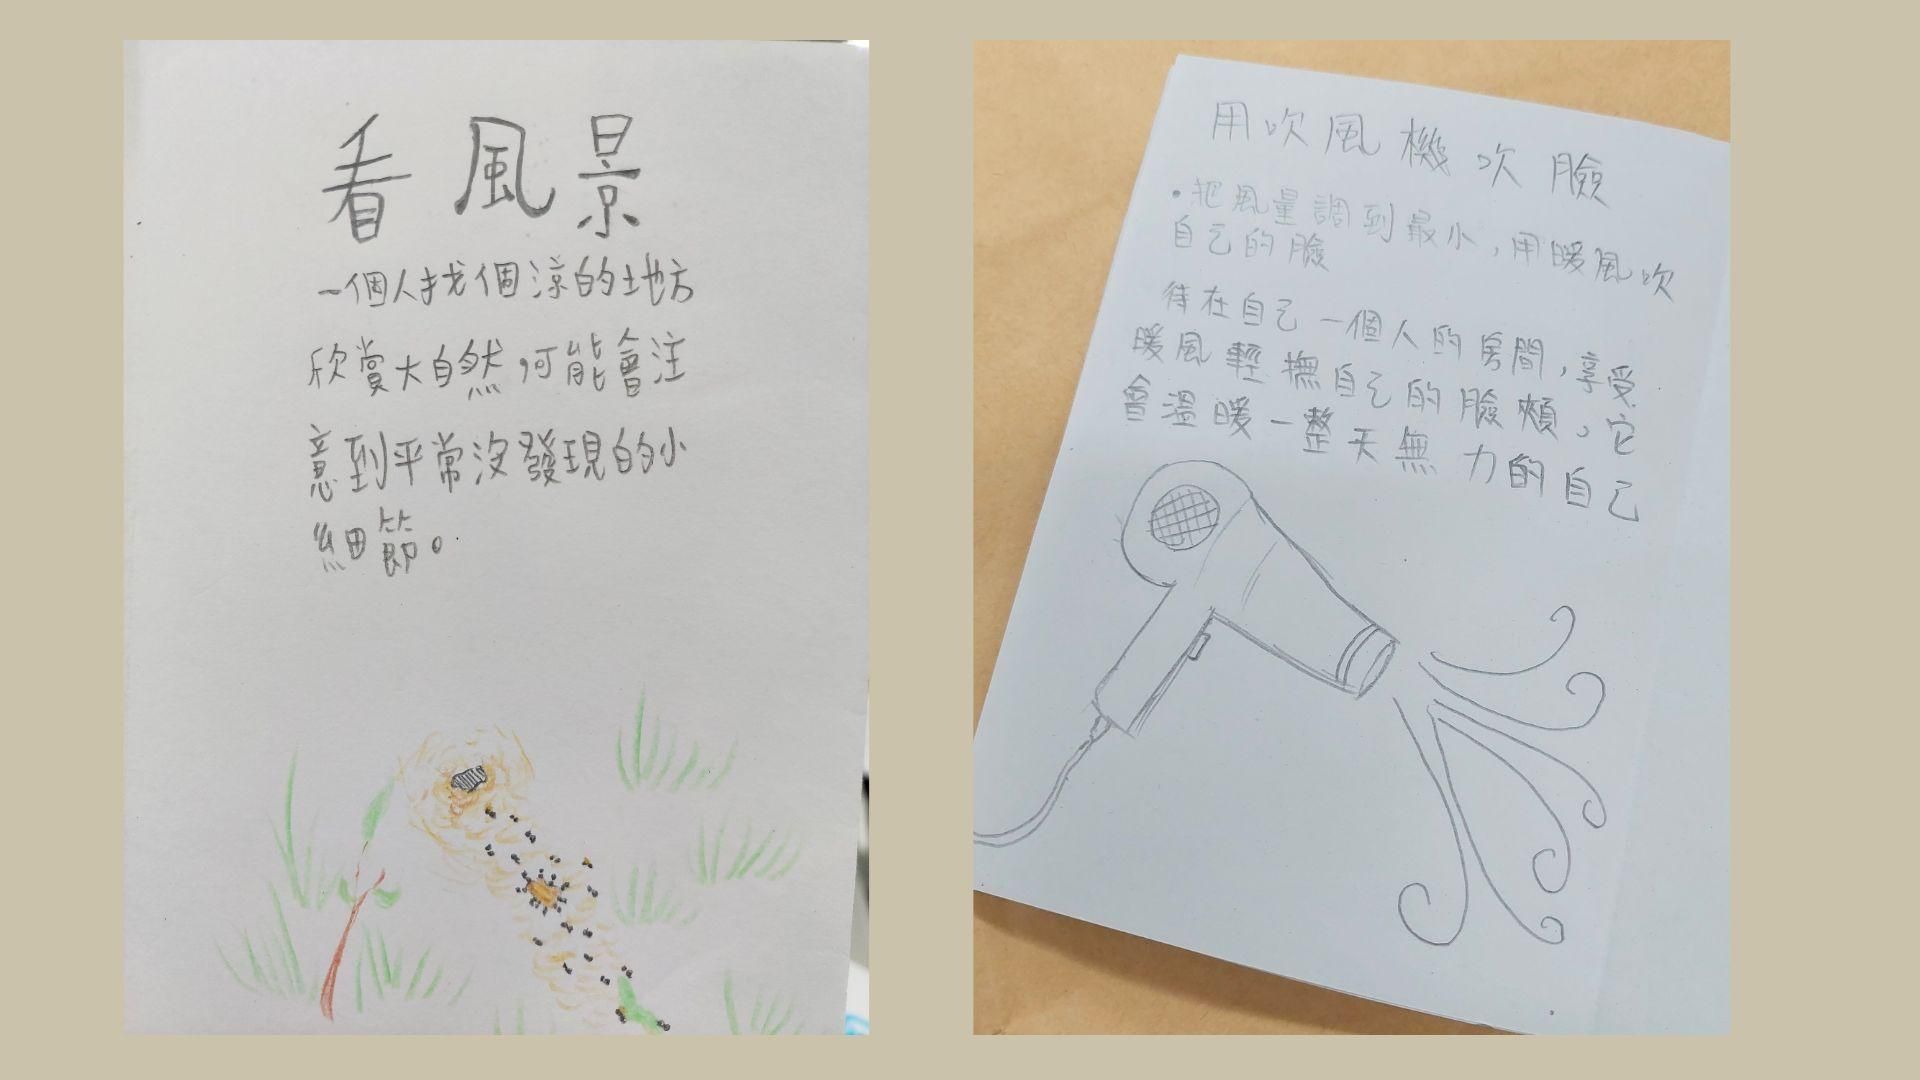 看風景
一個人找個涼的地方
欣賞大自然,可能會注
意到平常沒發現的小
細節。
用吹風機吹臉
•把風量調到最小,用暖風吹
自己的臉
待在自己一個人的房間,享受
暖風輕撫自己的臉頰,它
會溫暖一整天無力的自己